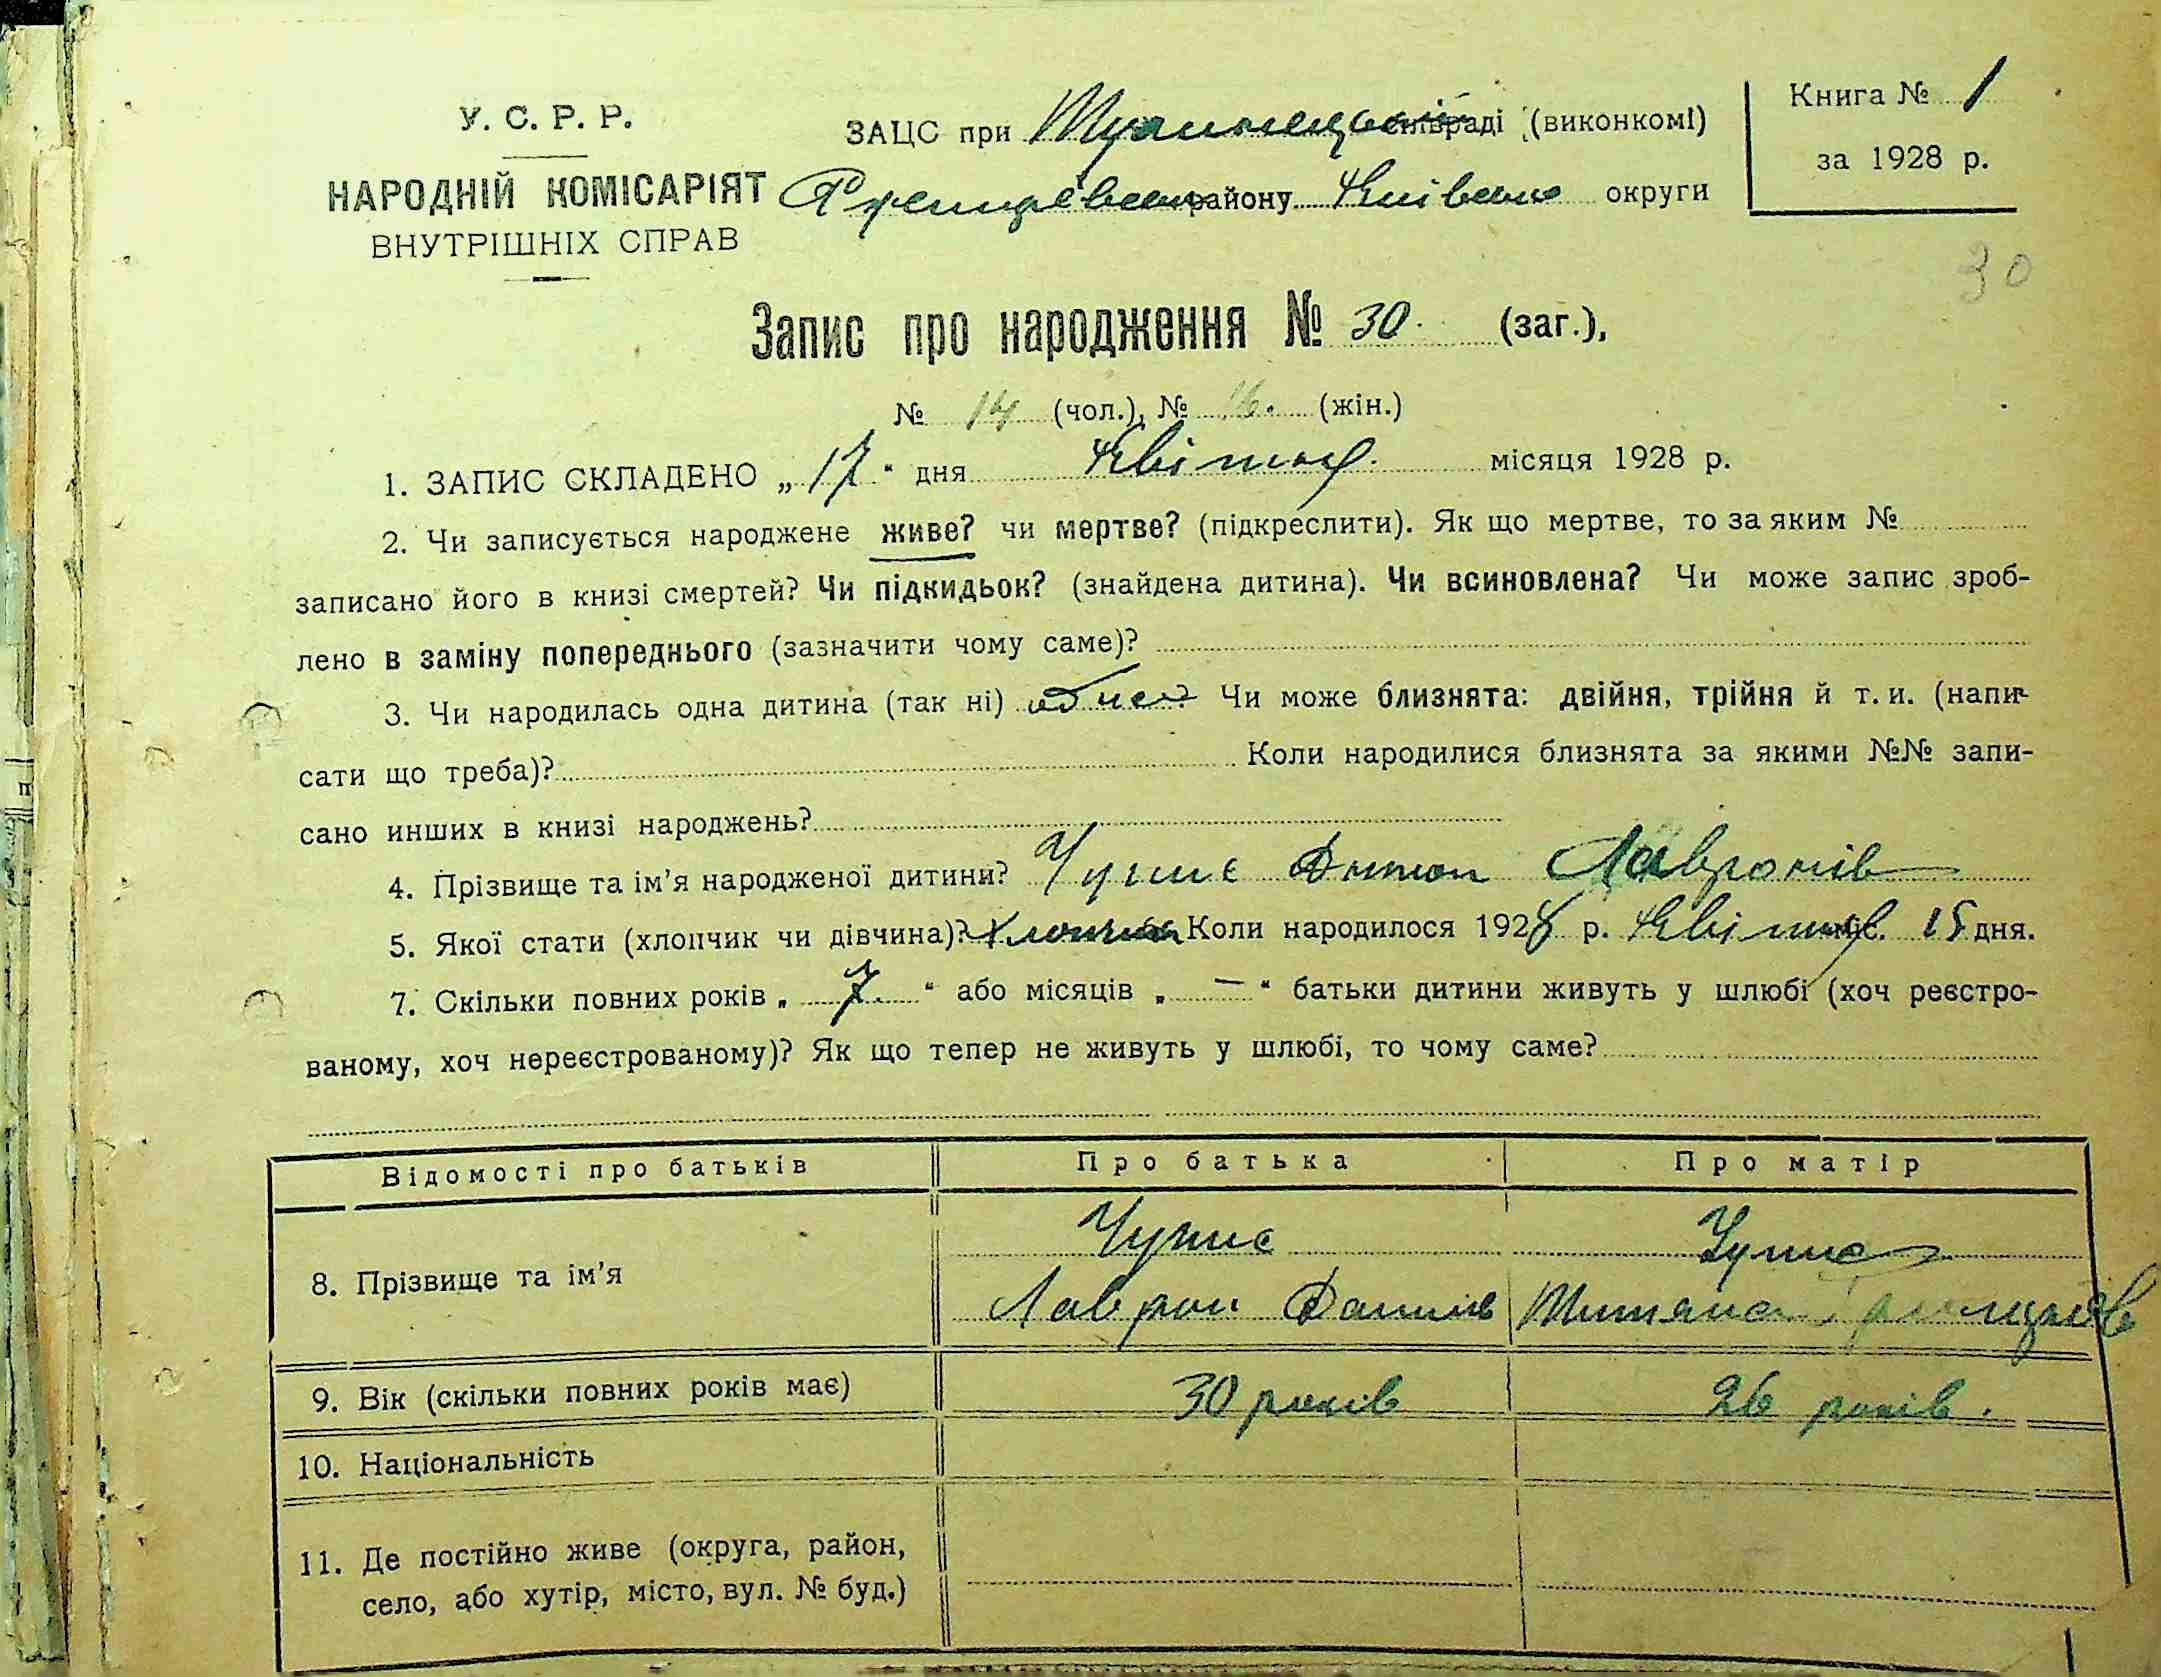 У. С. Р. Р.
НАРОДНІЙ КОМІСАРІЯТ
ВНУТРІШНІХ СПРАВ
ЗАЦС при сільраді (виконкомі)
району Київськ округи
Книга № 1
за 1928 р.
30
Запис про народження № 30. (заг.),
№ 14 (чол.), № 16. (жін.)
1. ЗАПИС СКЛАДЕНО „17“ дня Квітня. місяця 1928 р.
2. Чи записується народжене живе? чи мертве? (підкреслити). Як що мертве, то за яким №
записано його в книзі смертей? Чи підкидьок? (знайдена дитина). Чи всиновлена? Чи може запис зроб-
лено в заміну попереднього (зазначити чому саме)?
3. Чи народилась одна дитина (так ні) одне? Чи може близнята: двійня, трійня й т. и. (напи-
сати що треба)? Коли народилися близнята за якими №№ запи-
сано инших в книзі народжень?
4. Прізвище та ім’я народженої дитини? Чупис Антон Лавронів
5. Якої стати (хлопчик чи дівчина)? Хлопчик Коли народилося 1928 р. Квітня міс. 15 дня.
7. Скільки повних років „ 7. “ або місяців „ — “ батьки дитини живуть у шлюбі (хоч реєстро-
ваному, хоч нереєстрованому)? Як що тепер не живуть у шлюбі, то чому саме?
Відомості про батьків Про батька Про матір
8. Прізвище та ім’я
Чупис Чупис
Лаврон Данилів Титяна
9. Вік (скільки повних років має) 30 років 26 років.
10. Національність
11. Де постійно живе (округа, район,
село, або хутір, місто, вул. № буд.)